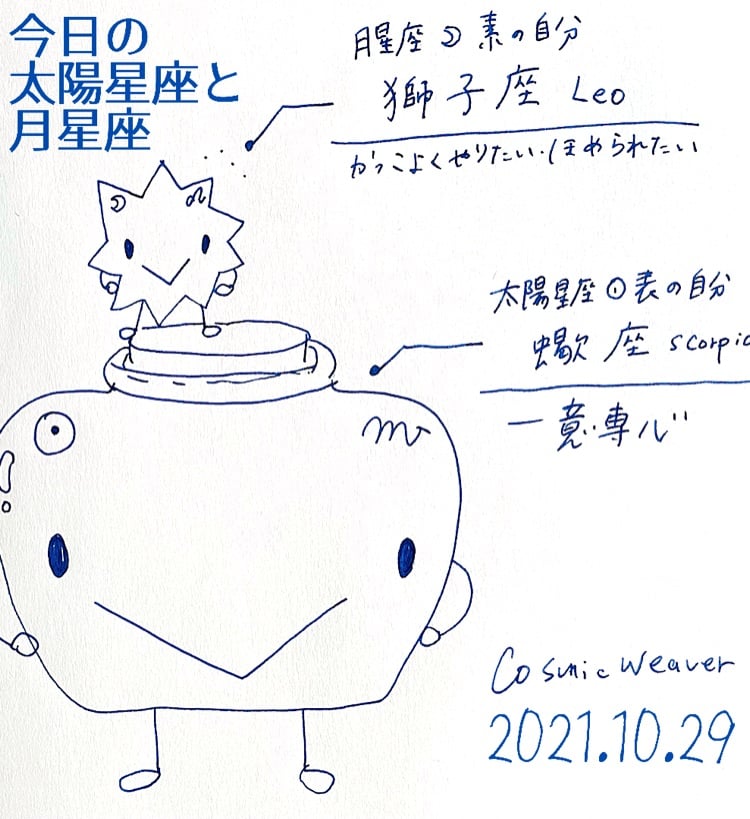 今日の
太陽星座と
月星座
月星座☽素の自分
獅子座 Leo
かっこよくやりたい・ほめられたい
太陽星座☉表の自分
蠍座 scorpio
一意専心
☽ ♌
☉ ♏
Cosmic Weaver
2021.10.29